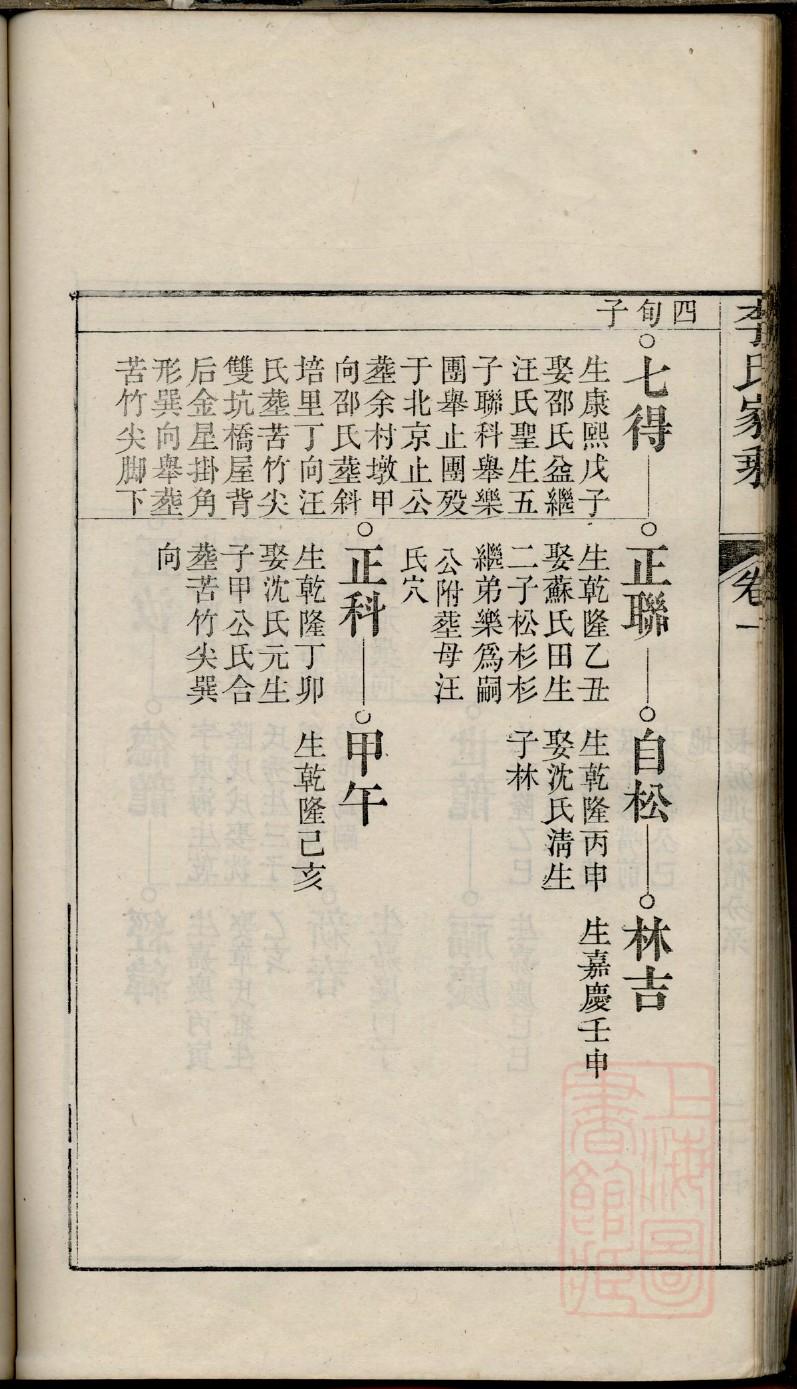 李氏家乘
卷一
四旬子
七得
生康熙戊子
娶邵氏盆繼
汪氏聖生五
子聯科舉樂
團舉止團殁
于北京止公
葬余村墩甲
向邵氏葬斜
培里丁向汪
氏葬苦竹尖
雙坑橋屋背
后金星掛角
形巽向舉葬
苦竹尖脚下
正聯
生乾隆乙丑
娶蘇氏田生
二子松杉杉
繼弟樂爲嗣
公附葬母汪
氏穴
正科
生乾隆丁卯
娶沈氏元生
子甲公氏合
葬苦竹尖巽
向
自松
生乾隆丙申
娶沈氏清生
子林
甲午
生乾隆己亥
林吉
生嘉慶壬申
上海圖
書館藏